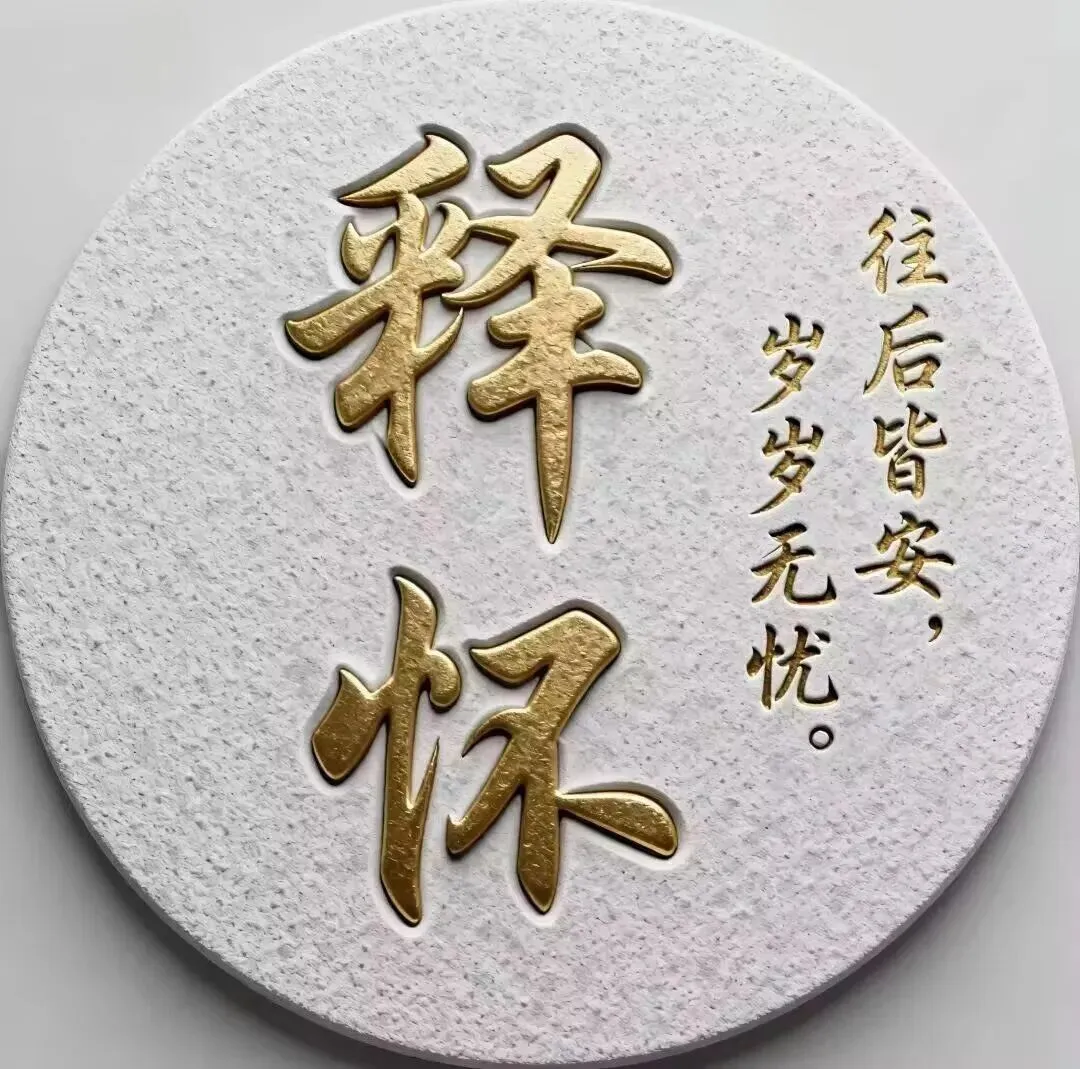 释怀
往后皆安，
岁岁无忧。